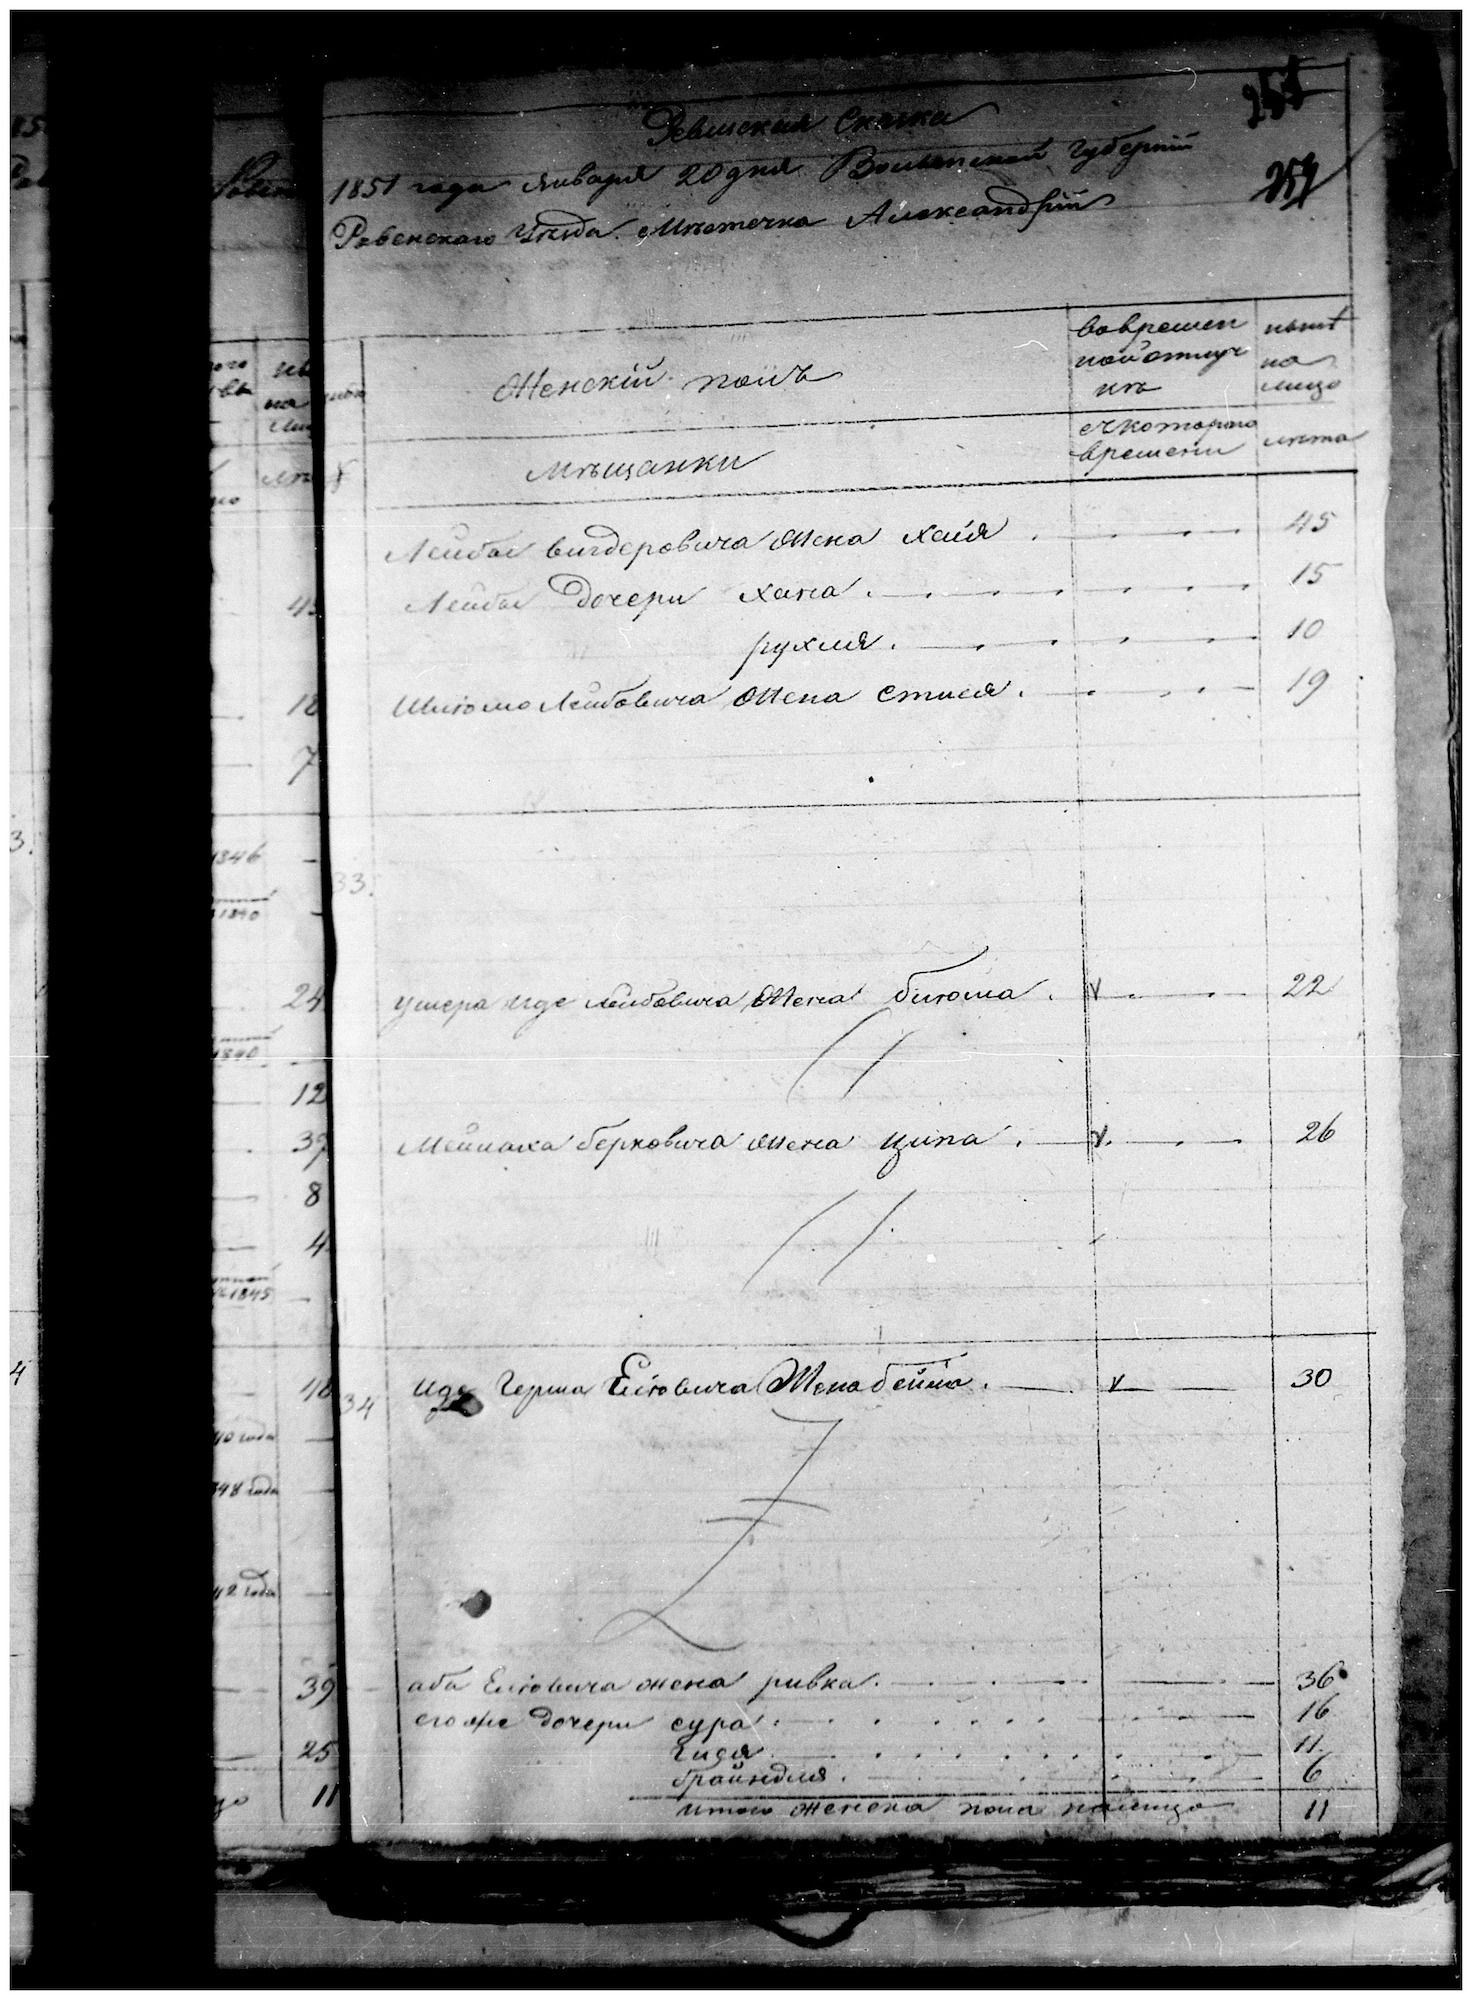 Ревизская Сказка
1851 года Января 20 дня Волынской Губернiи
257
Ровенского Уезда Местечка Александрiи
Женскiй полъ
во времен
ной отлуч
ке
ныне
на
лицо
Мещанки
с котораго
времени
лета
Лейбы Вигдеровича жена Хайя 45
Лейбы Дочери Хана 15
рухля 10
Шлiомо Лейбовича жена Стися 19
33.
Ушера иде Лейбовича жена блюма v 22
Мейлаха берковича жена ципа v 26
34 Иде Герша Елiовича Жена бейла v 30
аба Елiовича жена ривка 36
его же дочери сура 16
Гидя 11
брайндля 6
итого женска пола налицо 11
1846
1840
24
1840
12
39
8
4
1845
40 года
348 года
42 года
39
25
11
18
7